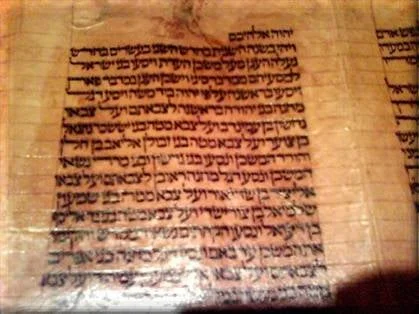 יהוה אלהיכם
ויהי בשנה השנית בחדש השני בעשרים בחדש
נעלה הענן מעל משכן העדת ויסעו בני ישראל
למסעיהם ממדבר סיני וישכן הענן במדבר פארן
ויסעו בראשנה על פי יהוה ביד משה ויסע דגל
מחנה בני יהודה בראשנה לצבאתם ועל צבאו
נחשון בן עמינדב ועל צבא מטה בני יששכר נתנאל
בן צוער ועל צבא מטה בני זבולן אליאב בן חלן
והורד המשכן ונסעו בני גרשון ובני מררי נשאי
המשכן ונסע דגל מחנה ראובן לצבאתם ועל צבאו
אליצור בן שדיאור ועל צבא מטה בני שמעון
שלמיאל בן צורישדי ועל צבא מטה בני גד אליסף
בן דעואל ונסעו הקהתים נשאי המקדש והקימו
את המשכן עד באם ונסע דגל מחנה בני אפרים
לצבאתם ועל צבאו אלישמע בן עמיהוד ועל צבא
מטה בני מנשה